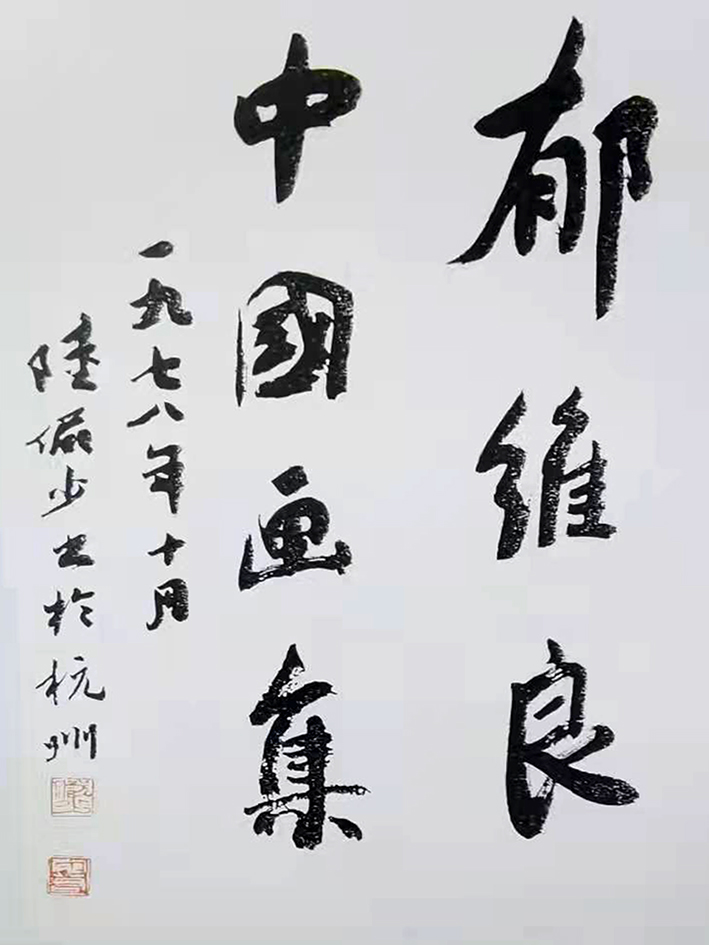 郁維良
中國画集
一九七八年十月
陸儼少书於杭州